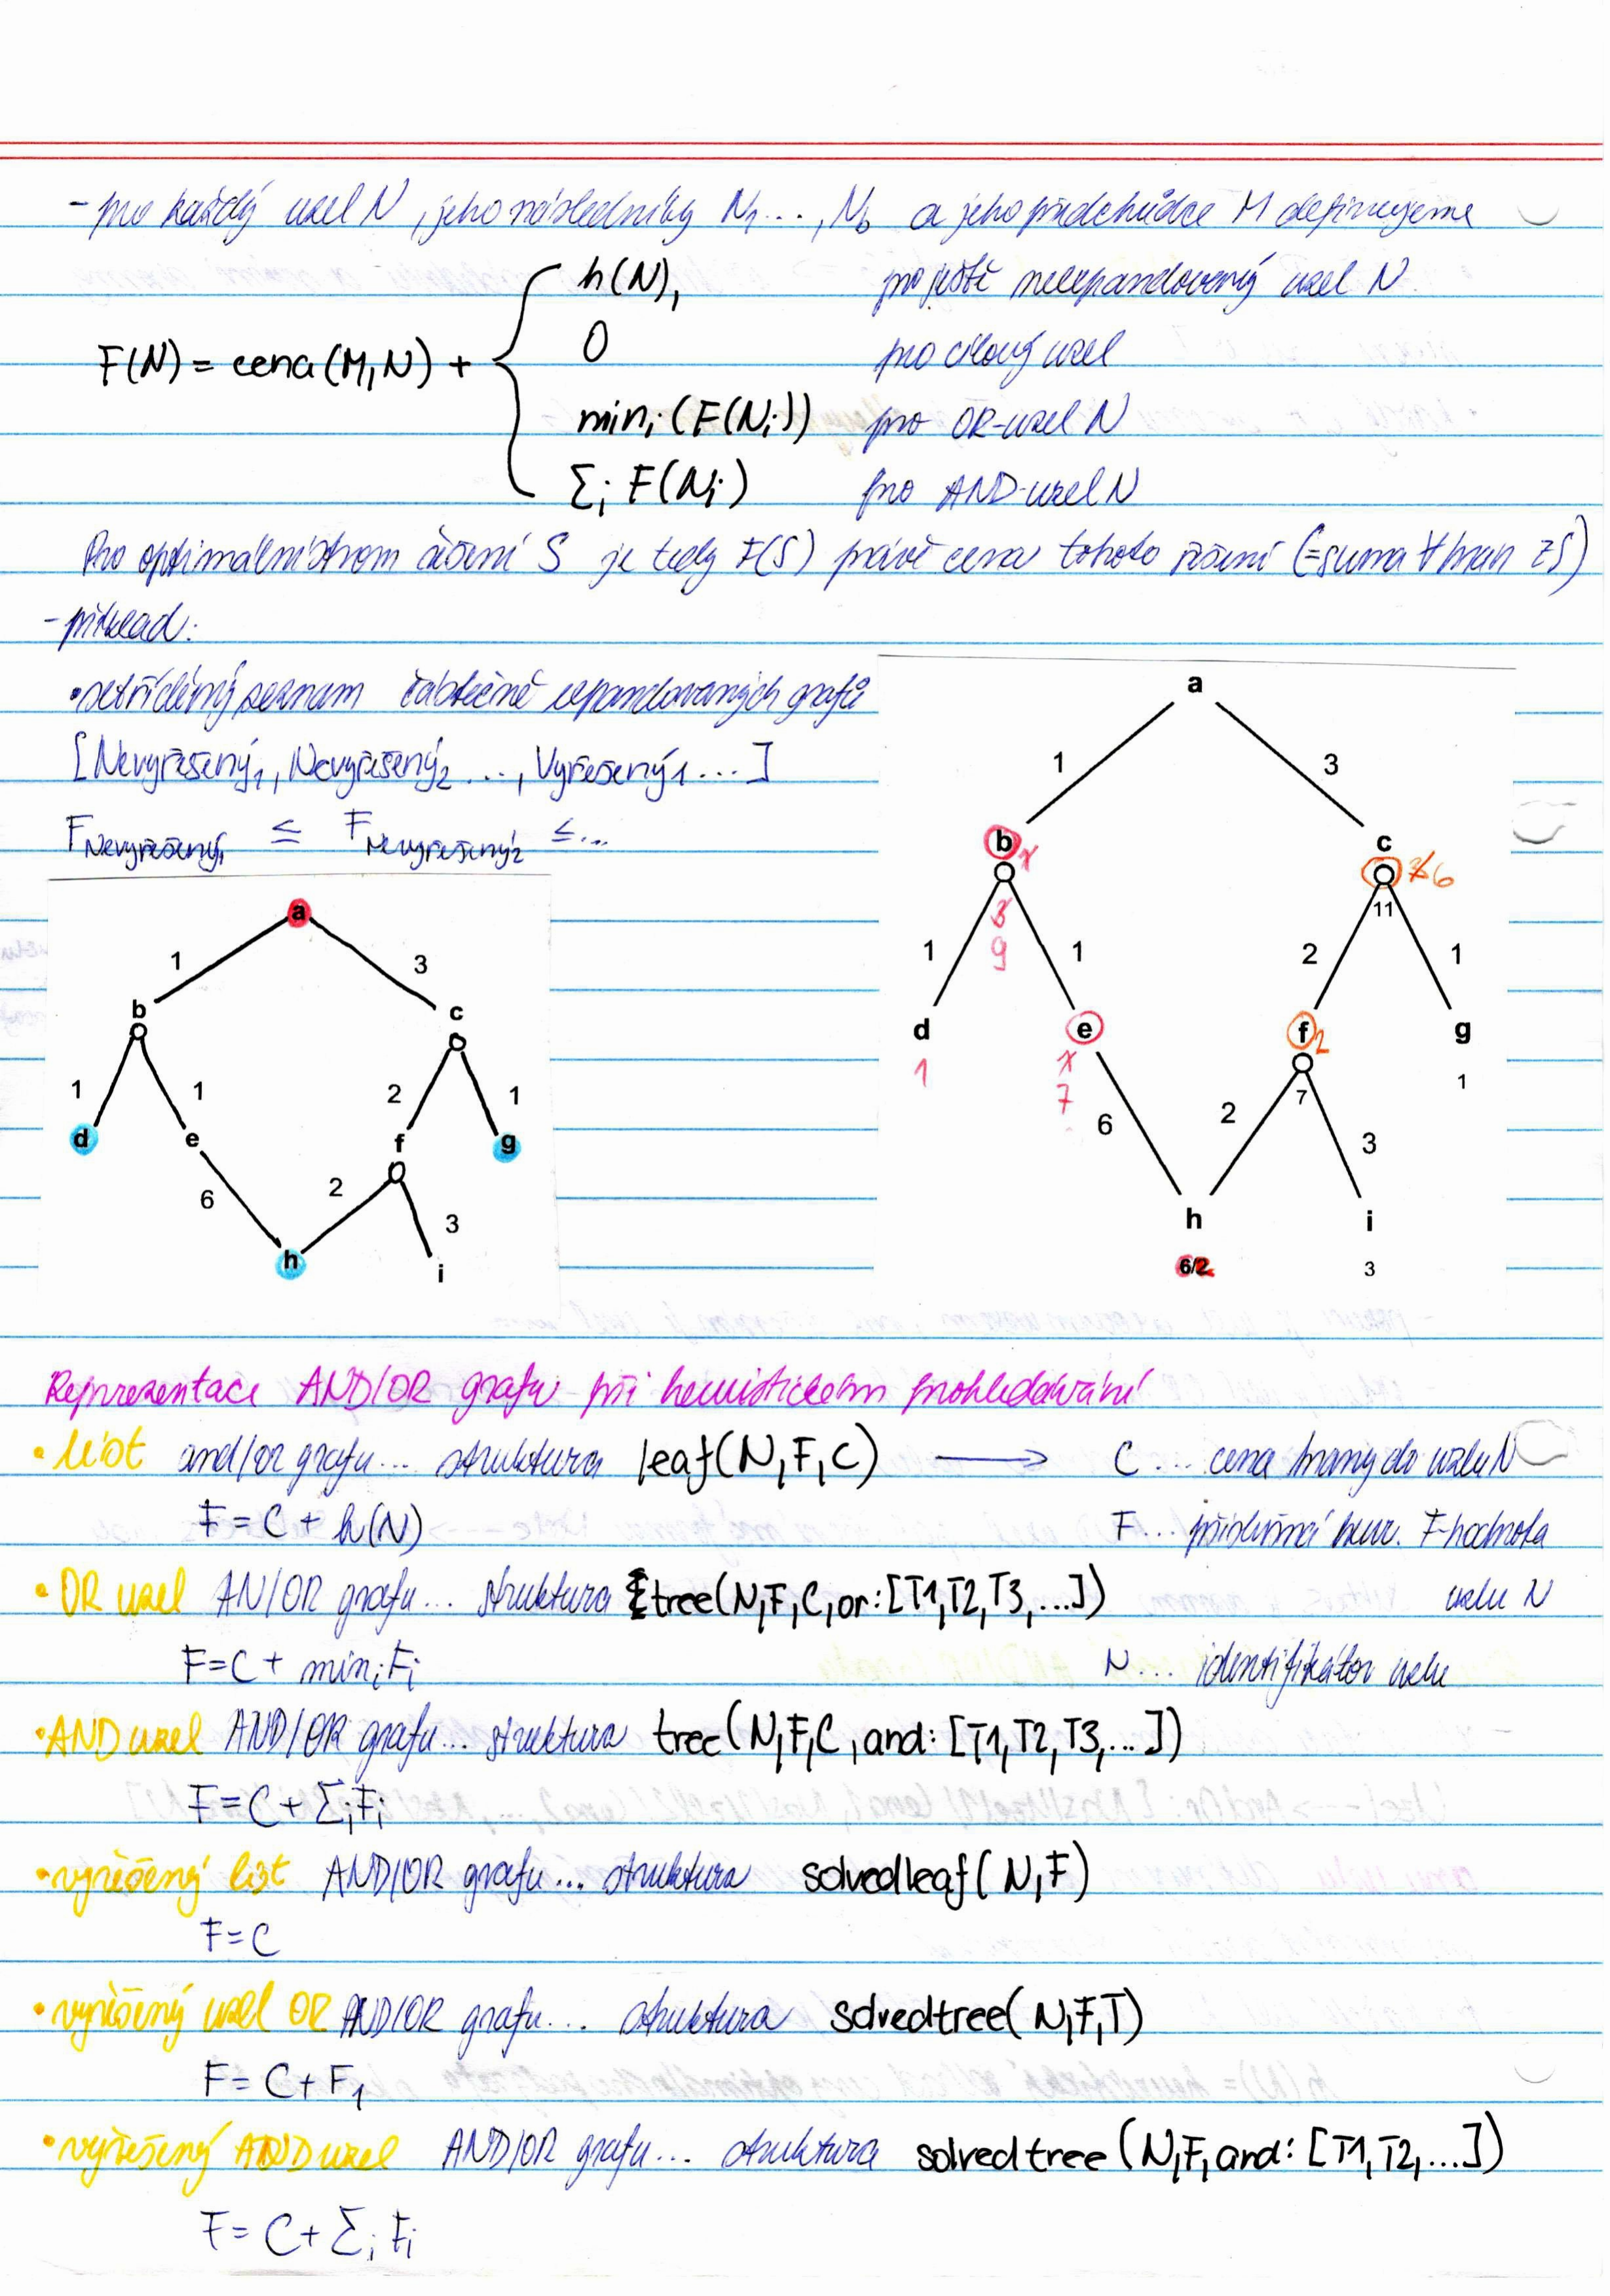 - pro každý uzel N, jeho následníky N1..., Nb a jeho předchůdce M definujeme
h(N), pro ještě neexpandovaný uzel N
0 pro cílový uzel
F(N) = cena(M,N) +
mini(F(Ni)) pro OR-uzel N
Σi F(Ni) pro AND-uzel N
Pro optimální strom řešení S je tedy F(S) právě cena tohoto řešení (=suma ∀ hran z S)
- příklad:
• setříděný seznam částečně expandovaných grafů
[Nevyřešený1, Nevyřešený2 ..., Vyřešený1 ...]
FNevyřešený1 ≤ FNevyřešený2 ≤...
a
1 3
b c
1 1 2 1
d e f g
6 2 3
h i
a
1 3
b 1 c 3 6
3 11
9
1 1 2 1
d e f 2 g
1 1 7 1
7
6 2 3
h i
6/2 3
Reprezentace AND/OR grafu při heuristickém prohledávání
• list and/or grafu... struktura leaf(N,F,C) → C ... cena hrany do uzlu N
F = C + h(N) F... příslušná heur. F-hodnota
• OR uzel AN/OR grafu... struktura tree(N,F,C,or:[T1,T2,T3,...]) uzlu N
F=C+ miniFi N... identifikátor uzlu
• AND uzel AND/OR grafu... struktura tree(N,F,C,and:[T1,T2,T3,...])
F=C+ΣiFi
• vyřešený list AND/OR grafu... struktura solvedleaf(N,F)
F=C
• vyřešený uzel OR AND/OR grafu... struktura solvedtree(N,F,T)
F= C+F1
• vyřešený AND uzel AND/OR grafu... struktura solvedtree(N,F,and:[T1,T2,...])
F= C+Σi Fi